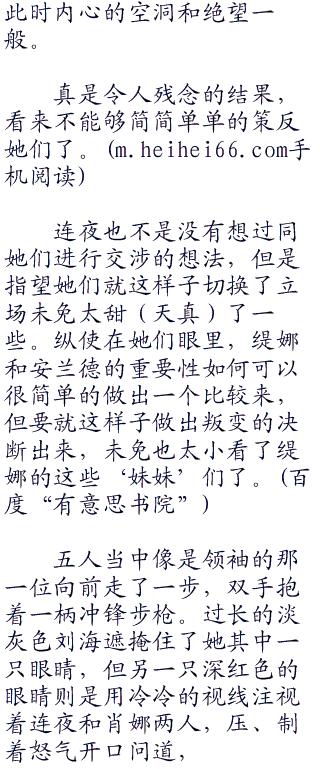 此时内心的空洞和绝望一
般。
真是令人残念的结果，
看来不能够简简单单的策反
她们了。(m.heihei66.com手
机阅读)
连夜也不是没有想过同
她们进行交涉的想法，但是
指望她们就这样子切换了立
场未免太甜（天真）了一
些。纵使在她们眼里，缇娜
和安兰德的重要性如何可以
很简单的做出一个比较来，
但要就这样子做出叛变的决
断出来，未免也太小看了缇
娜的这些‘妹妹’们了。(百
度“有意思书院”)
五人当中像是领袖的那
一位向前走了一步，双手抱
着一柄冲锋步枪。过长的淡
灰色刘海遮掩住了她其中一
只眼睛，但另一只深红色的
眼睛则是用冷冷的视线注视
着连夜和肖娜两人，压、制
着怒气开口问道，